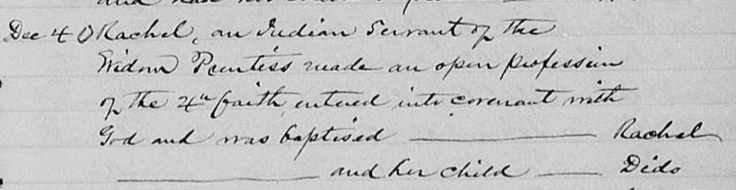 Dec 4 O Rachel, an Indian Servant of the
Widow Prentiss made an open profession
of the faith, entered into covenant with
God and was baptised — Rachel
— and her child — Dido